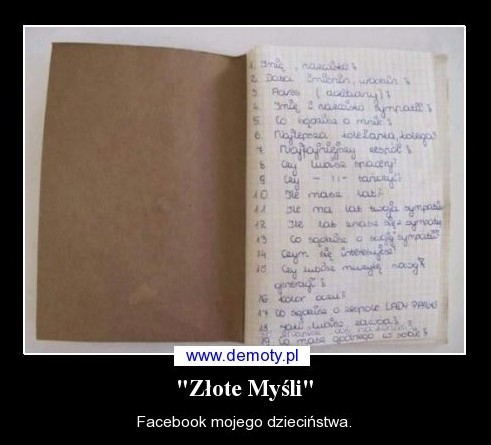 1. Imię, nazwisko?
2. Data imienin, urodzin?
3. Adres (dokładny)?
4. Imię i nazwisko sympatii?
5. Co sądzisz o mnie?
6. Najlepsza koleżanka, kolega?
7. Najfajniejszy zespół?
8. Czy lubisz spacery?
9. Czy - 11 - tańczyć?
10. Ile masz lat?
11. Ile ma lat twoja sympatia
12. Ile lat znasz się z sympatią
13. Co sądzisz o swojej sympatii?
14. Czym się interesujesz?
15. Czy lubisz muzykę naszej
generacji?
16. Kolor oczu?
17. Co sądzisz o zespole LADY PANK?
18. Jaki lubisz zawód?
19. Co masz godnego w sobie?
www.demoty.pl
"Złote Myśli"
Facebook mojego dzieciństwa.